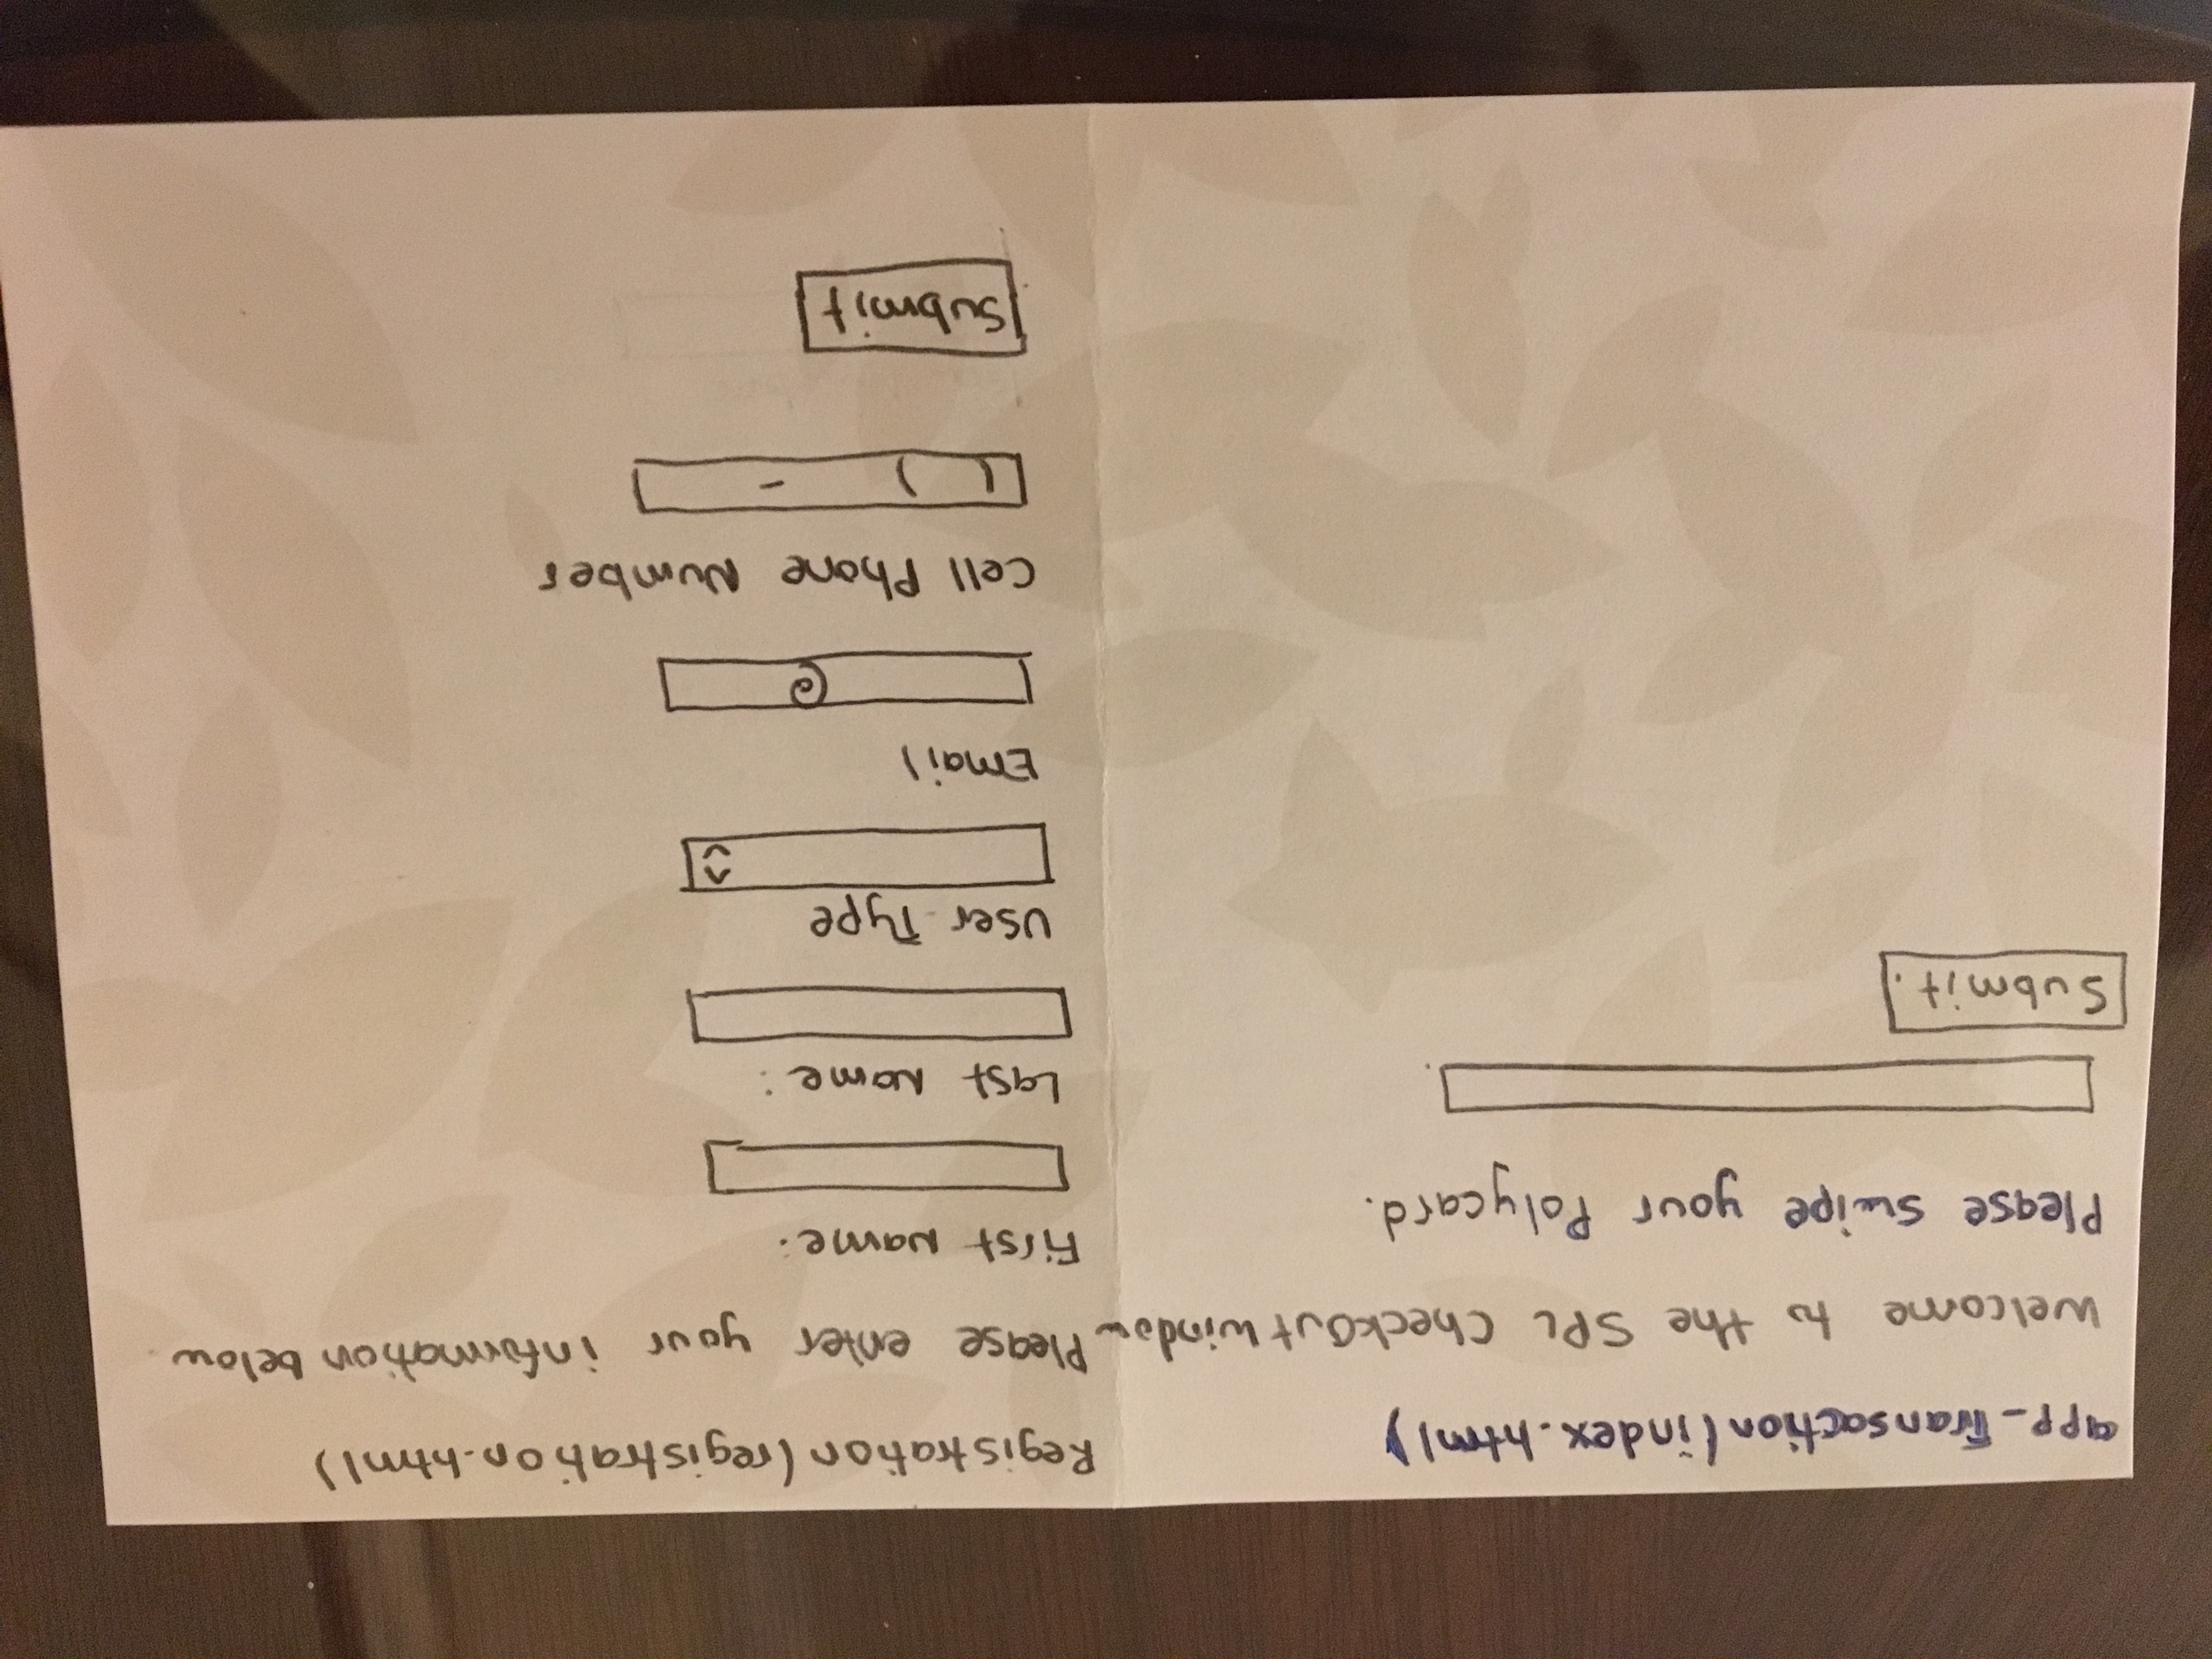 app_Transaction(index.html)
Welcome to the SPL CheckOut window
Please swipe your Polycard.
Submit.
Registration(registration.html)
Please enter your information below.
First Name:
Last Name:
User Type
Email
@
Cell Phone Number
( ) -
Submit